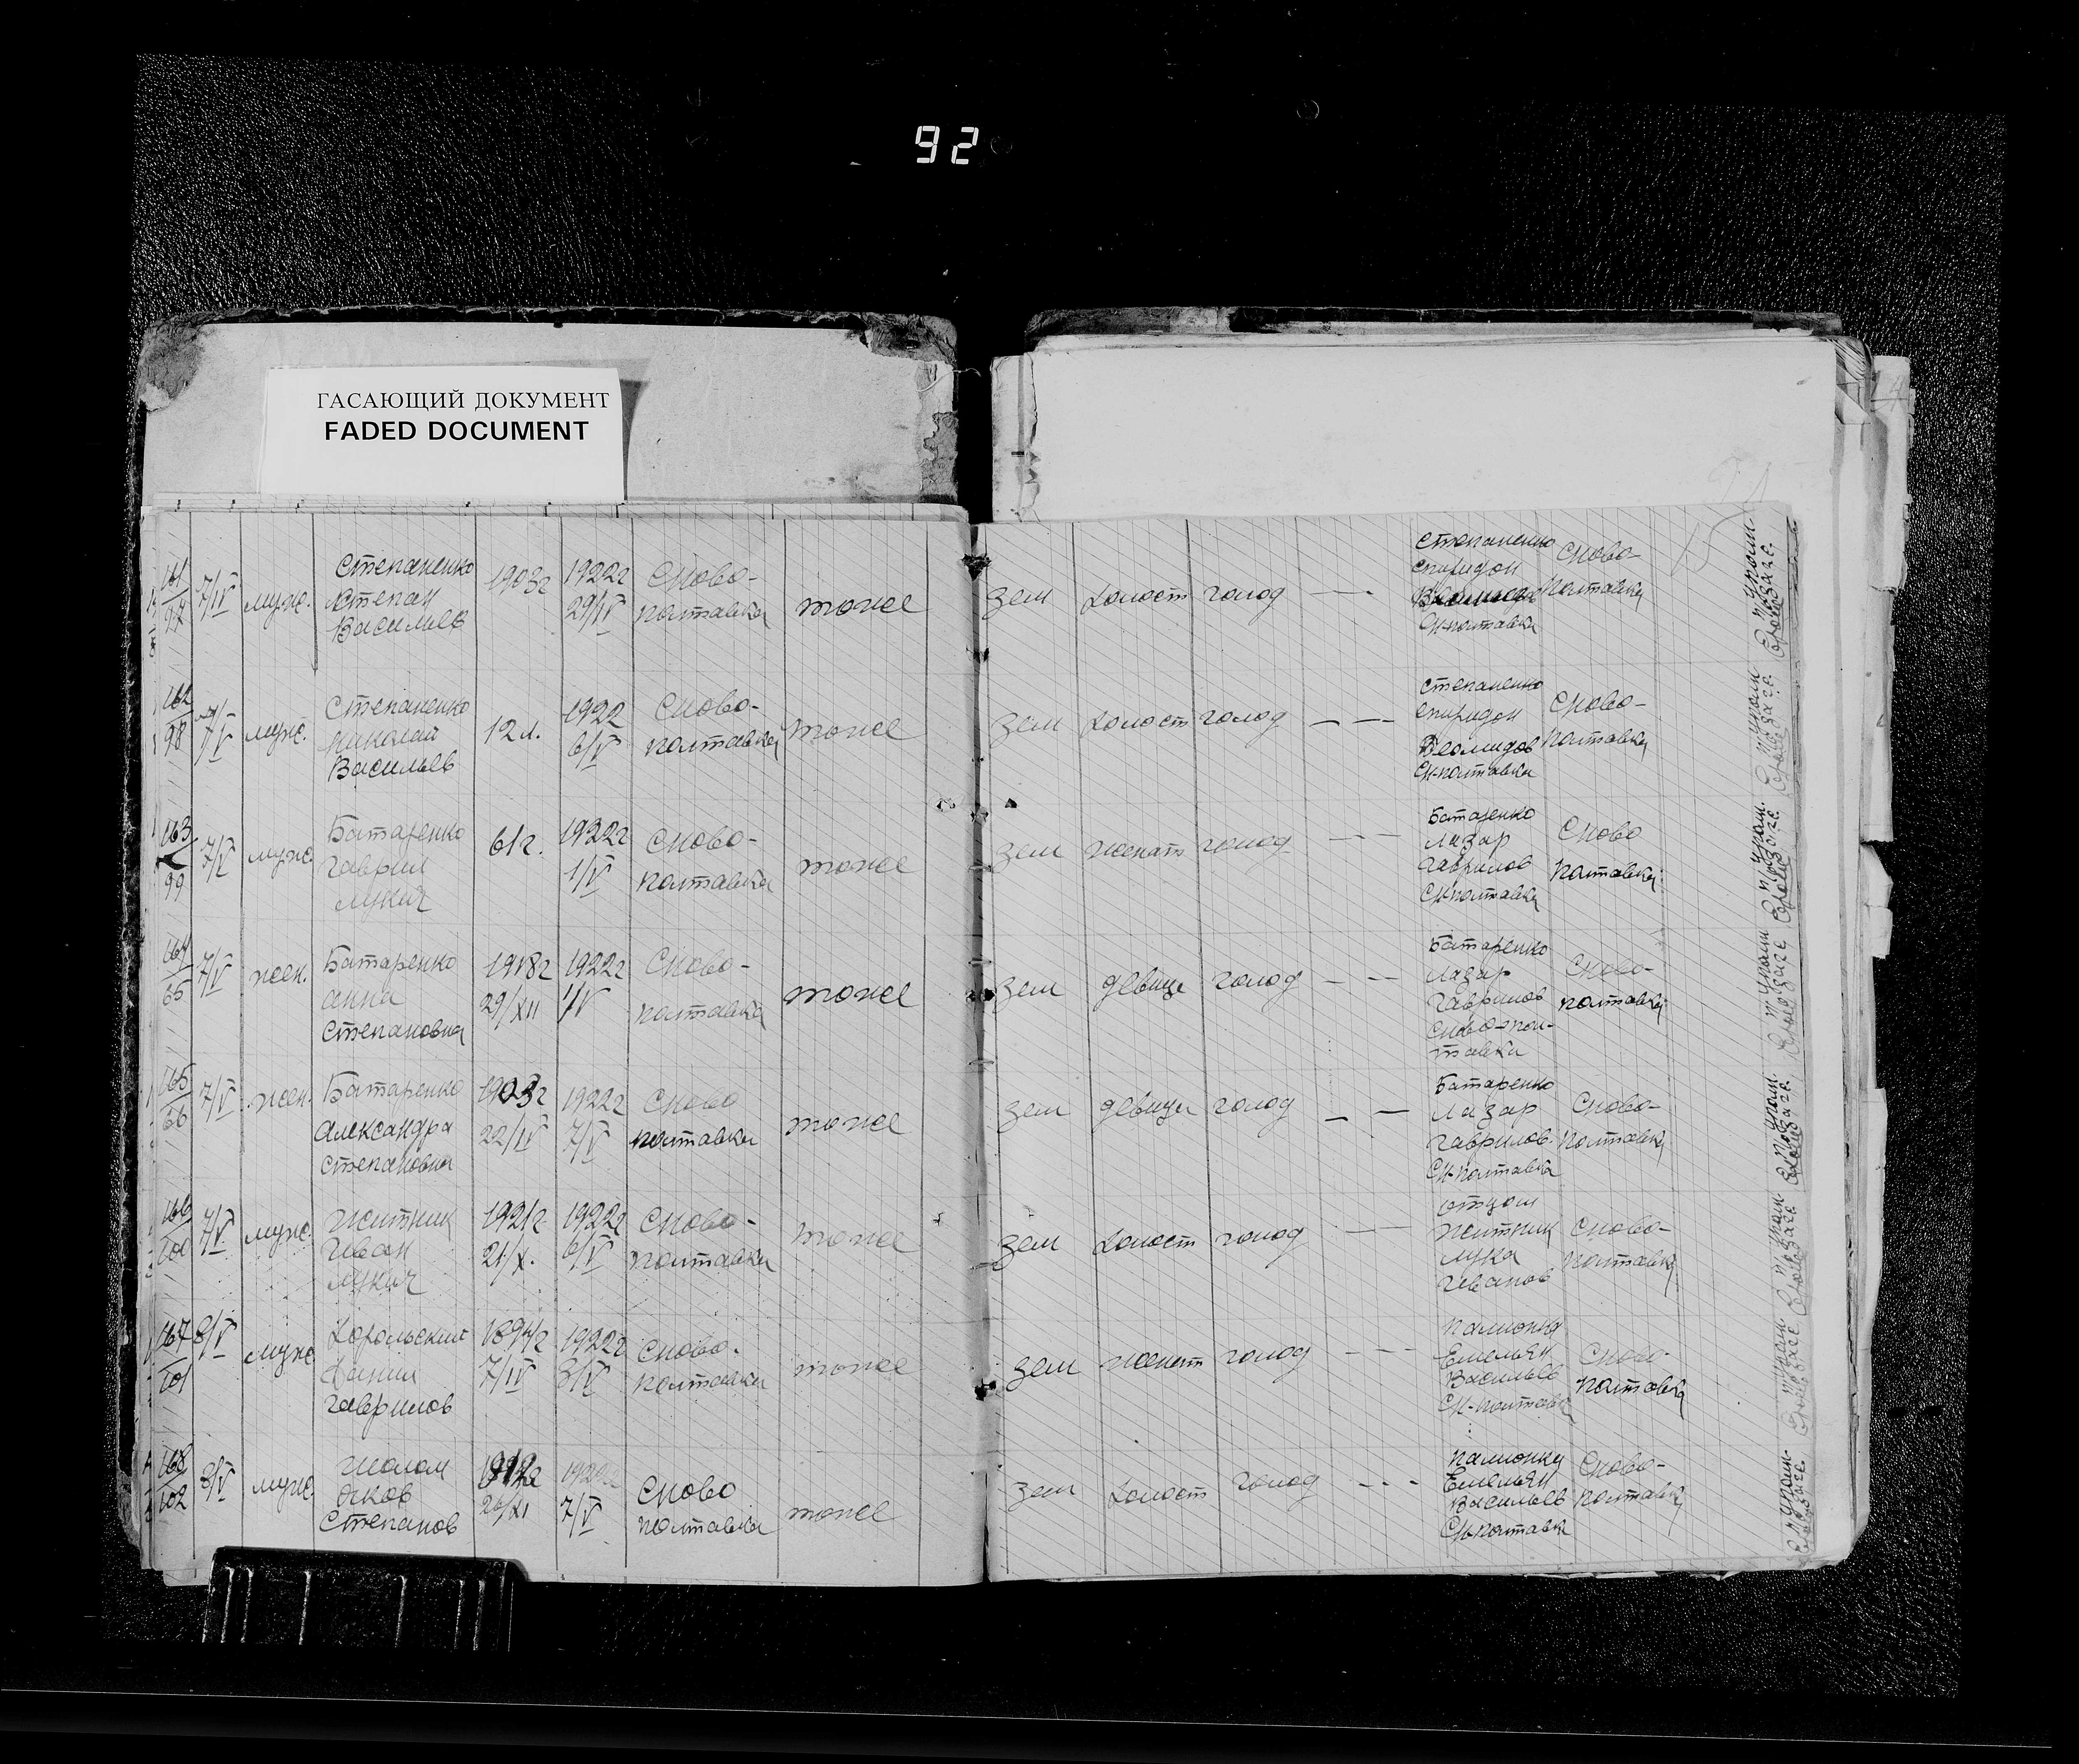 92
ГАСАЮЩИЙ ДОКУМЕНТ
FADED DOCUMENT
161
97
7/IV
муж.
Степаненко
Степан
Васильев
1903г
1922г
29/IV
Сново-
полтавка
тоже
зем
холост
голод
Степаненко
Спиридон
Сн-полтавка
Сново-
полтавка
162
98
7/V
муж.
Степаненко
Николай
Васильев
12 л.
1922
6/V
Сново-
полтавка
тоже
зем
холост
голод
Степаненко
Спиридон
Сн-полтавка
Сново-
полтавка
163
99
7/V
муж.
Батаренко
Гаврил
Лукич
61г.
1922г
1/V
Сново-
полтавка
тоже
зем
женат
голод
Батаренко
Лазар
Гаврилов
Сн-полтавка
Сново
полтавка
164
65
7/V
жен.
Батаренко
Анна
Степановна
1918г
29/XII
1922г
1/V
Сново-
полтавка
тоже
зем
девица
голод
Батаренко
Лазар
Гаврилов
Сново-пол-
тавки
Сново-
полтавка
165
66
7/V
жен.
Батаренко
Александра
Степановна
22/IV
1922г
7/V
Сново
полтавка
тоже
зем
девица
голод
Батаренко
Лазар
Гаврилов
Сн-полтавка
Сново-
полтавка
166
100
7/V
муж.
Житник
Иван
Лукич
1921г
21/X.
1922г
6/V
Сново-
полтавка
тоже
зем
холост
голод
отцом
Житник
Лука
Иванов
Сново-
полтавка
167
101
8/V
муж
Корольский
Данил
Гаврилов
1894г
7/IV
1922г
8/V
Сново-
полтавка
тоже
зем
женат
голод
Емельян
Васильев
Сн-полтавк
Сново-
полтавка
168
102
8/V
муж.
Яков
Степанов
26/XI
1922г
7/V
Сново
полтавка
тоже
зем
холост
голод
Емельян
Васильев
Сн-полтавка
Сново-
полтавка